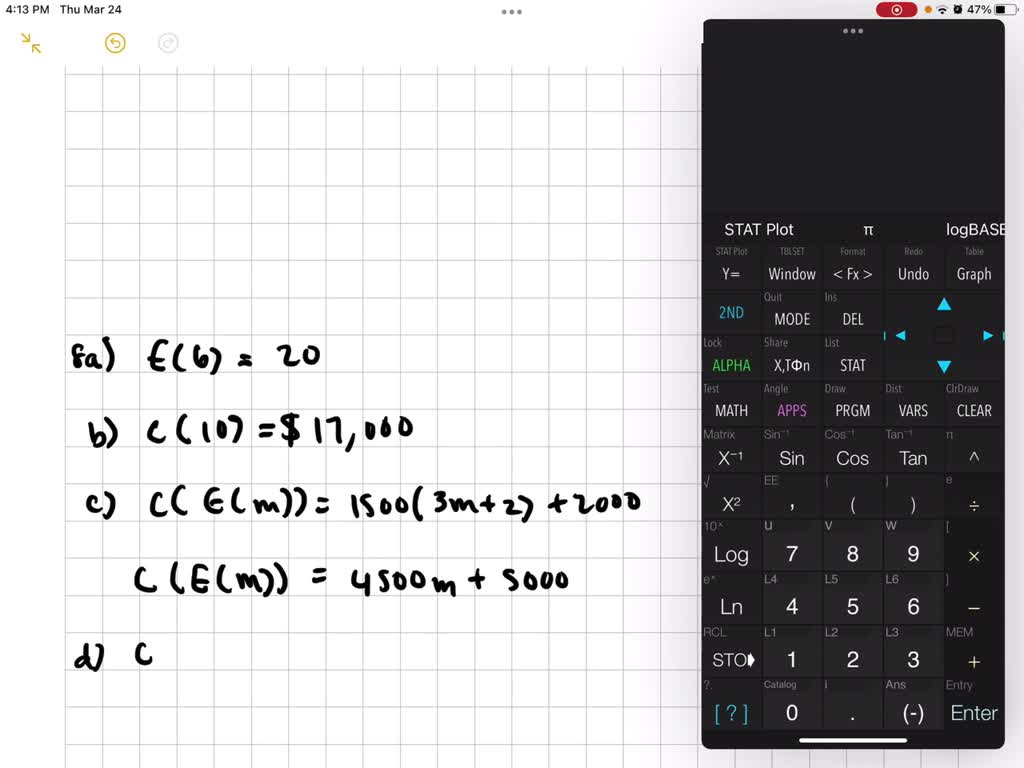 4:13 PM Thu Mar 24
47%
8a) E(6) = 20
b) C(10) = $ 17,000
c) C(E(m)) = 1500(3m+2) + 2000
C(E(m)) = 4500m + 5000
d) C
STAT Plot π logBASE
STAT Plot TBLSET Format Redo Table
Y= Window < Fx > Undo Graph
Quit Ins
2ND MODE DEL
Lock Share List
ALPHA X,TΦn STAT
Test Angle Draw Dist ClrDraw
MATH APPS PRGM VARS CLEAR
Matrix Sin⁻¹ Cos⁻¹ Tan⁻¹ π
X⁻¹ Sin Cos Tan ^
√ EE { } e
X² , ( ) ÷
10ˣ u v w [
Log 7 8 9 ×
eˣ L4 L5 L6 ]
Ln 4 5 6 −
RCL L1 L2 L3 MEM
STO 1 2 3 +
?. Catalog i Ans Entry
[ ? ] 0 . (-) Enter